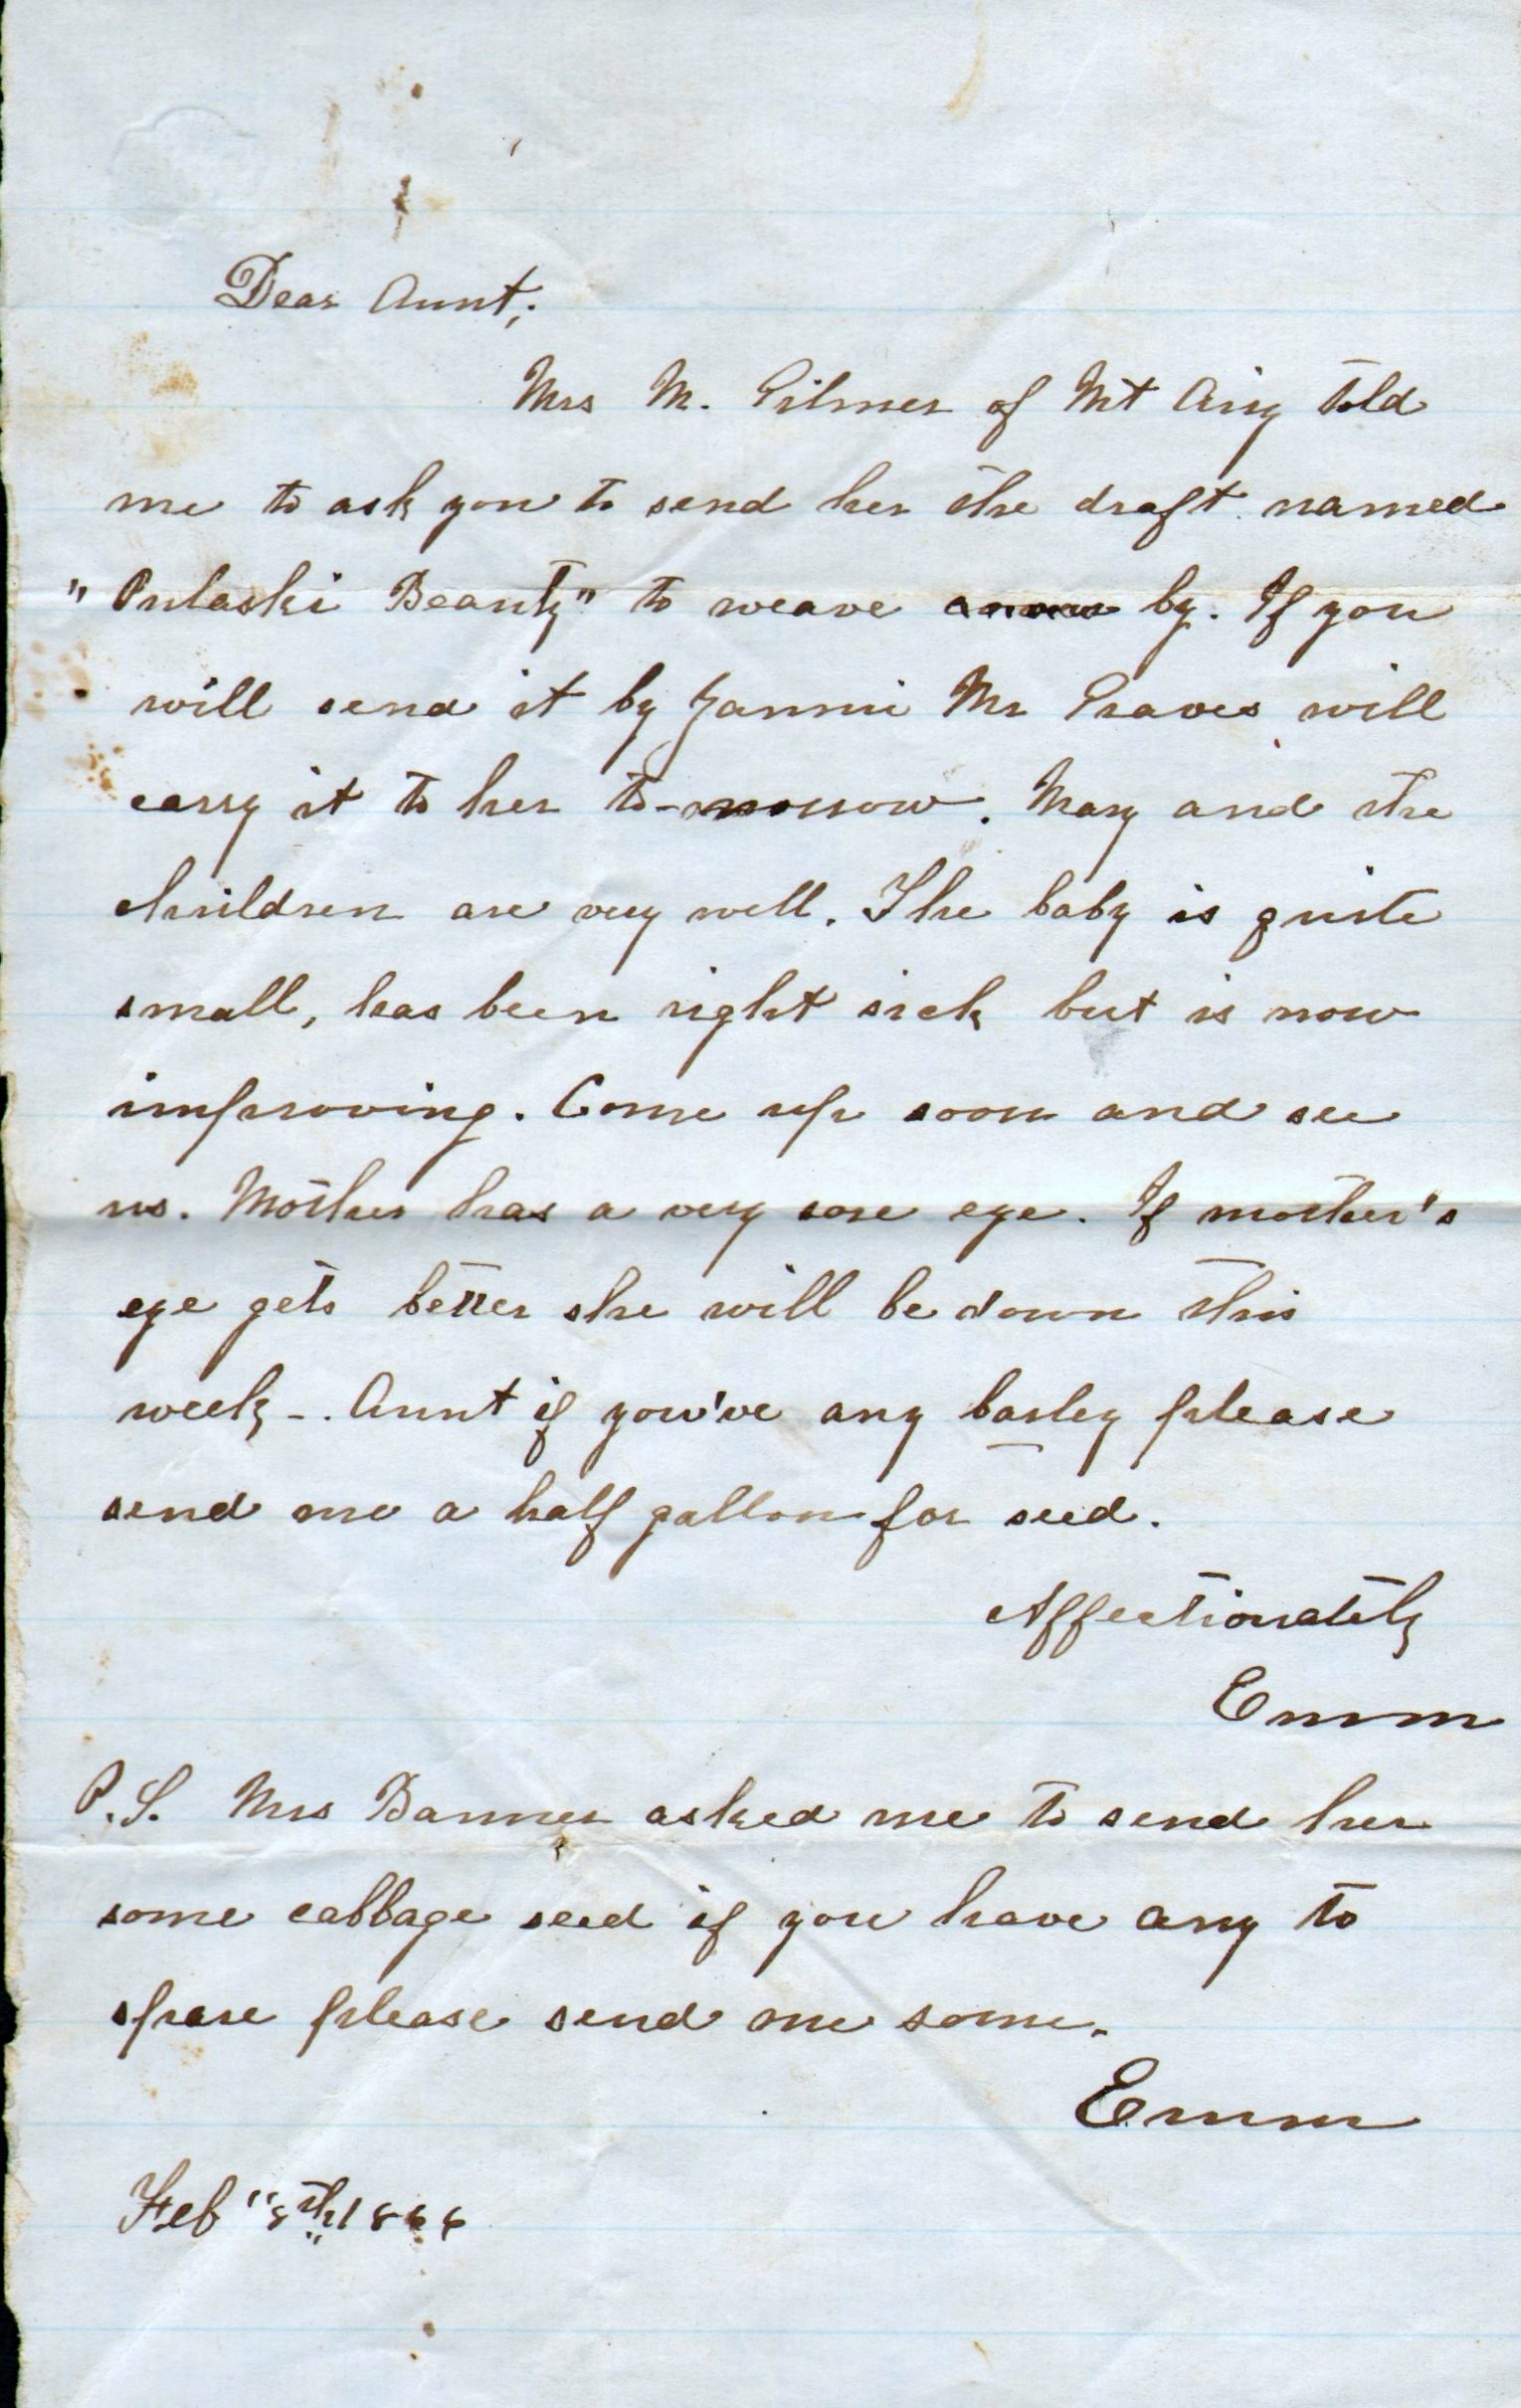 Dear Aunt;
Mrs M. Gilmer of Mt Airy told
me to ask you to send her the draft named
"Pulaski Beauty" to weave by. If you
will send it by Jannie Mr Graves will
carry it to her to-morrow. Mary and the
children are very well. The baby is quite
small, has been right sick but is now
improving. Come up soon and see
us. Mother has a very sore eye. If mother's
eye gets better she will be down this
week -. Aunt if you've any barley please
send me a half gallon for seed.
Affectionately
Emm
P.S. Mrs Banner asked me to send her
some cabbage seed if you have any to
spare please send me some.
Emm
Feb "8th" 1866